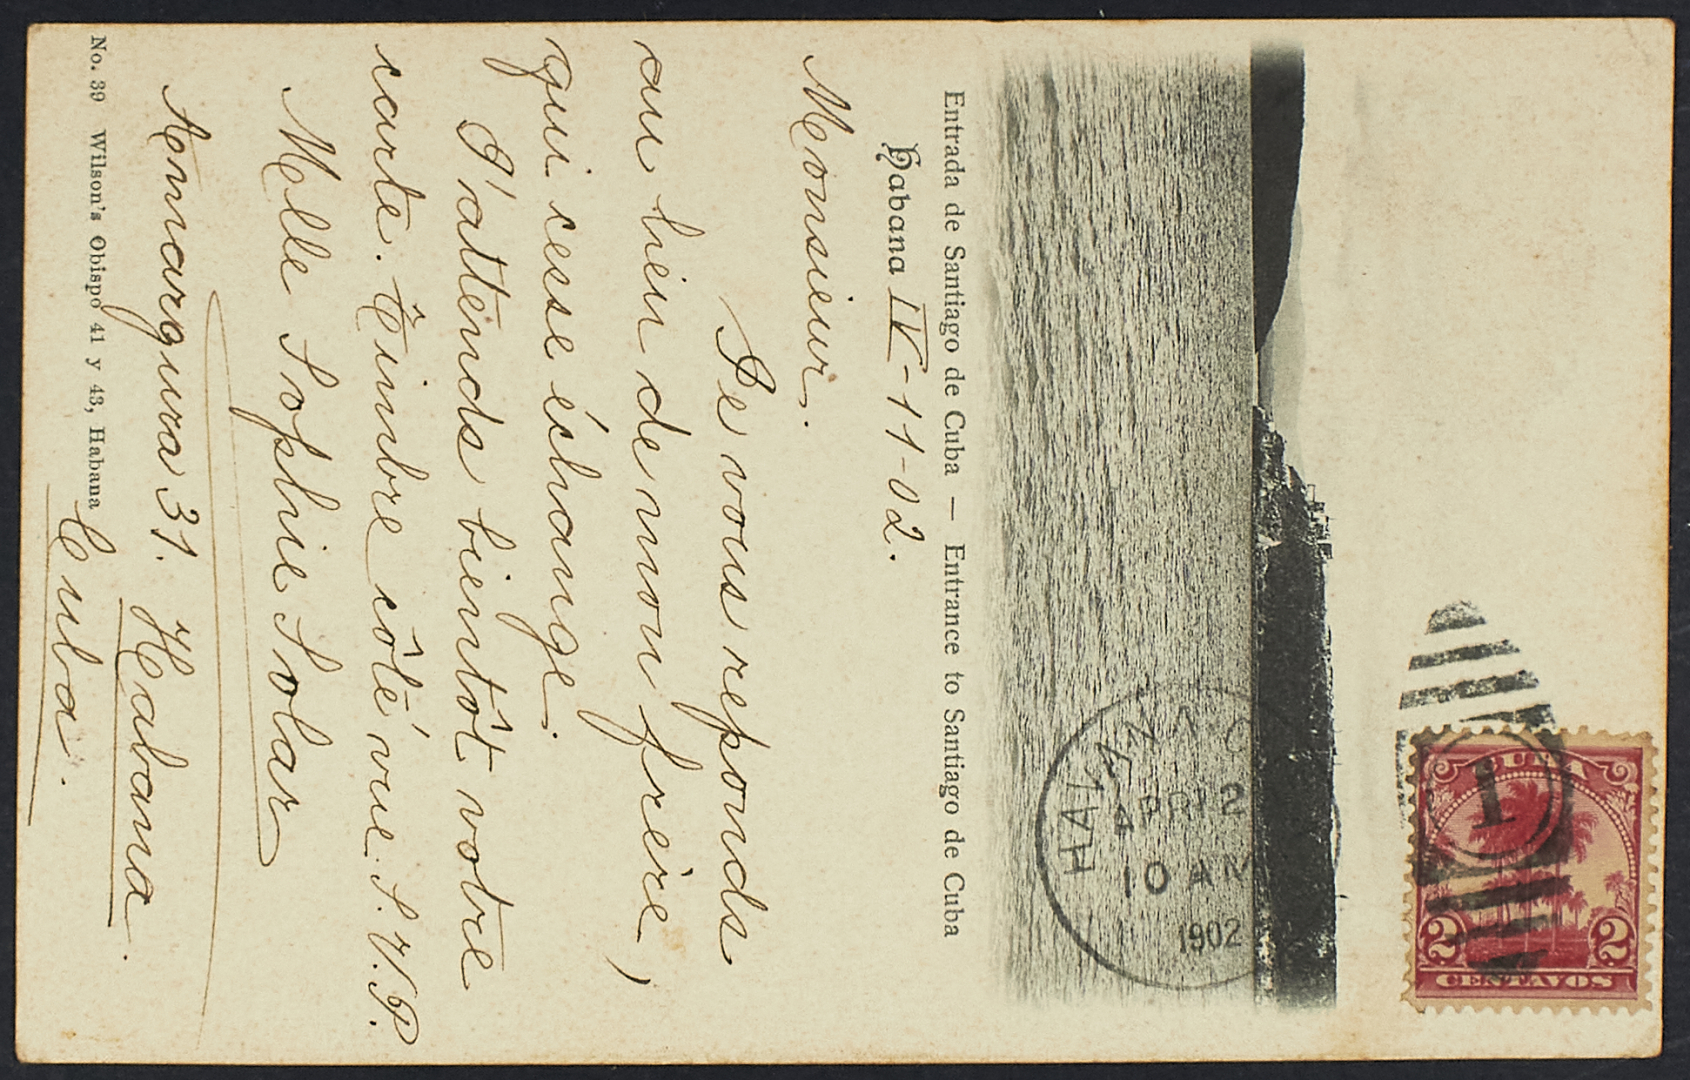 CUBA
1
2 2
CENTAVOS
HAVANA C
APR 12
10 AM
1902
Entrada de Santiago de Cuba — Entrance to Santiago de Cuba
Habana IV-11-02.
Monsieur.
Je vous reponds
au lieu de mon frère,
qui cesse échange.
J'attends bientôt votre
carte. Timbre côté vue. S.V.P.
Melle Sophie Solar
Amargura 31. Habana.
Cuba.
No. 39 Wilson's Obispo 41 y 43, Habana